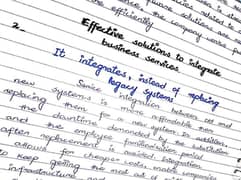 the efficiently
2. Effective solutions to integrate
business services
It integrates, instead of replacing
legacy systems
Service integration between old and
new systems is more affordable than
replacing them for a new system. In addition,
the downtime demanded by the substitution
and the employee familiarization period
after replacement is avoided. Integration
allows for cheaper costs, enables companies
to keep getting the most out of
infrastructure and